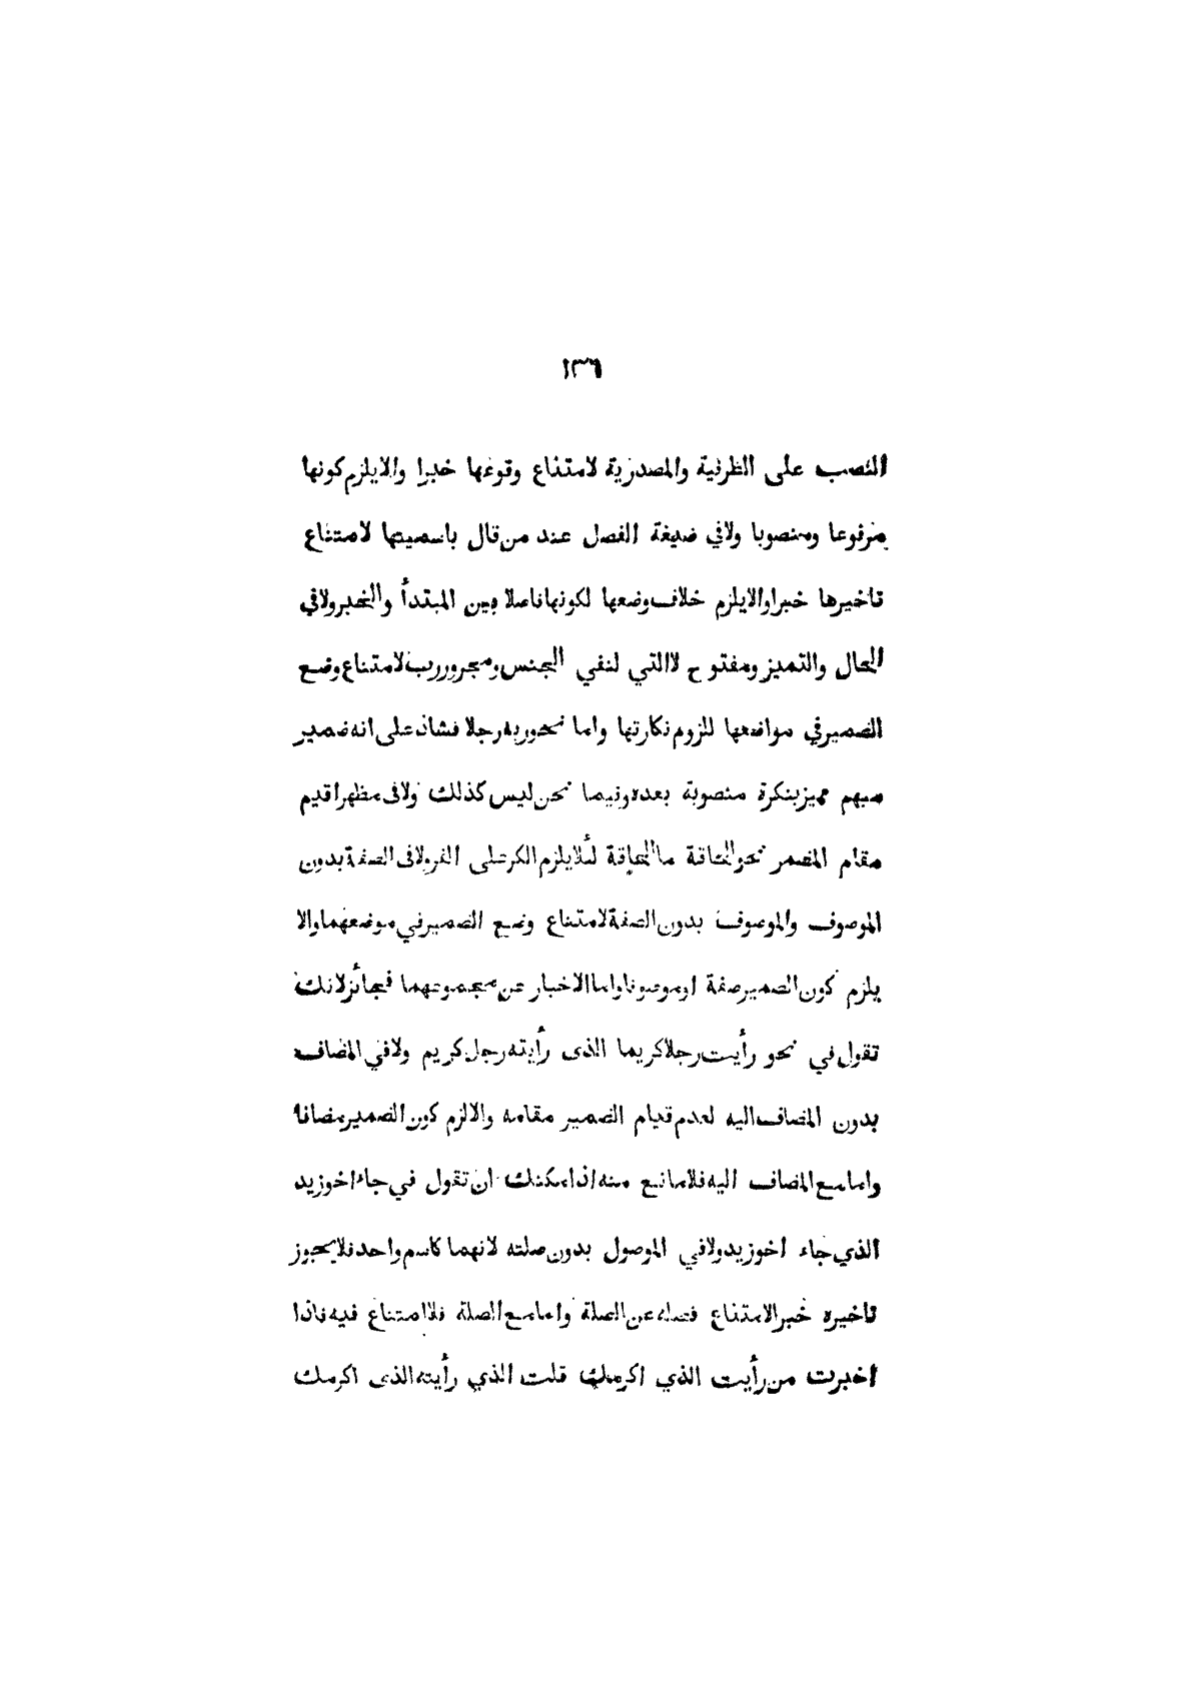 ١٣٦
النصب على الظرفية والمصدرية لامتناع وقوعها خبرا والايلزم كونها
مرفوعا ومنصوبا ولافي ضيغة الفصل عند من قال باسميتها لامتناع
تاخيرها خبرا والايلزم خلاف وضعها لكونها فاصلا بين المبتدأ والخبر ولافي
الحال والتميز ومفتوح لا التي لنفي الجنس ومجرور رب لامتناع وضع
الضمير في مواضعها للزوم نكارتها واما نحو ربه رجلا فشاذ على انه ضمير
مبهم مميز بنكرة منصوبة بعده وفيما نحن ليس كذلك ولا فى مظهر اقيم
مقام المضمر نحو الحاقة ما الحاقة لئلا يلزم الكر على الفر ولا فى الصفة بدون
الموصوف والموصوف بدون الصفة لامتناع وضع الضمير في موضعهما والا
يلزم كون الضمير صفة او موصوفا واما الاخبار عن مجموعهما فجائز لانك
تقول في نحو رأيت رجلا كريما الذى رأيته رجل كريم ولافي المضاف
بدون المضاف اليه لعدم قيام الضمير مقامه والالزم كون الضمير مضافا
واما مع المضاف اليه فلامانع منه اذ امكنك ان تقول في جاء اخوزيد
الذي جاء اخوزيد ولافي الموصول بدون صلته لانهما كاسم واحد فلايجوز
تاخيره خبرا لامتناع فصله عن الصلة واما مع الصلة فلا امتناع فيه فاذا
اخبرت من رأيت الذي اكرمك قلت الذي رأيته الذى اكرمك